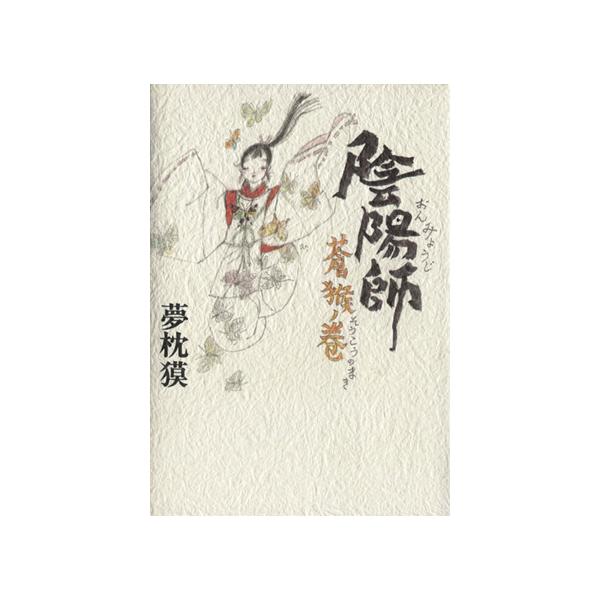 陰陽師
おんみょうじ
蒼猴ノ巻
そうこうのまき
夢枕獏